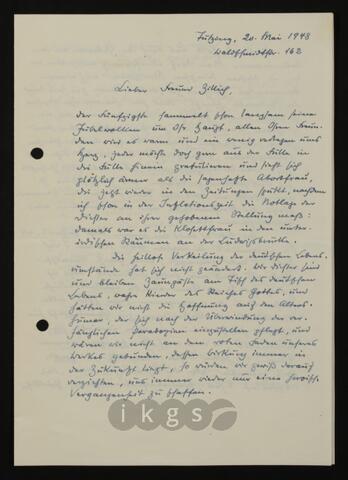 Tutzing, 20. Mai 1948
Waldschmidtstr. 162
Lieber Freund Zillich,
der Fünfzigste sammelt schon langsam seine
Jubelwolken um Ihr Haupt, allen Ihren Freun-
den wird es warm und ein wenig verlegen ums
Herz. Jeder möchte doch gern aus der Fülle in
die Fülle hinein gratulieren und sieht sich
plötzlich ärmer als die sagenhafte Abortfrau,
die jetzt wieder in den Zeitungen spukt, nachdem
ich schon in der Inflationszeit die Notlage der
Dichter an ihrer gehobenen Stellung maß:
damals war es die Klosettfrau in den unter-
irdischen Räumen an der Ludwigsbrücke.
Die heillose Verkeilung der deutschen Lebens-
umstände hat sich nicht geändert. Wir Dichter sind
und bleiben Zaungäste am Tisch des deutschen
Lebens, wahre Kinder des Reiches Gottes, und
hätten wir nicht die Hoffnung auf den Alters-
humor, der sich nach der Überwindung der ver-
fänglichen Paradoxien einzustellen pflegt, und
wären wir nicht an den roten Faden unseres
Werkes gebunden, dessen Wirkung immer in
der Zukunft liegt, so würden wir gewiß darauf
verzichten, uns immer wieder nur eine
Vergangenheit zu schaffen.
ikgs